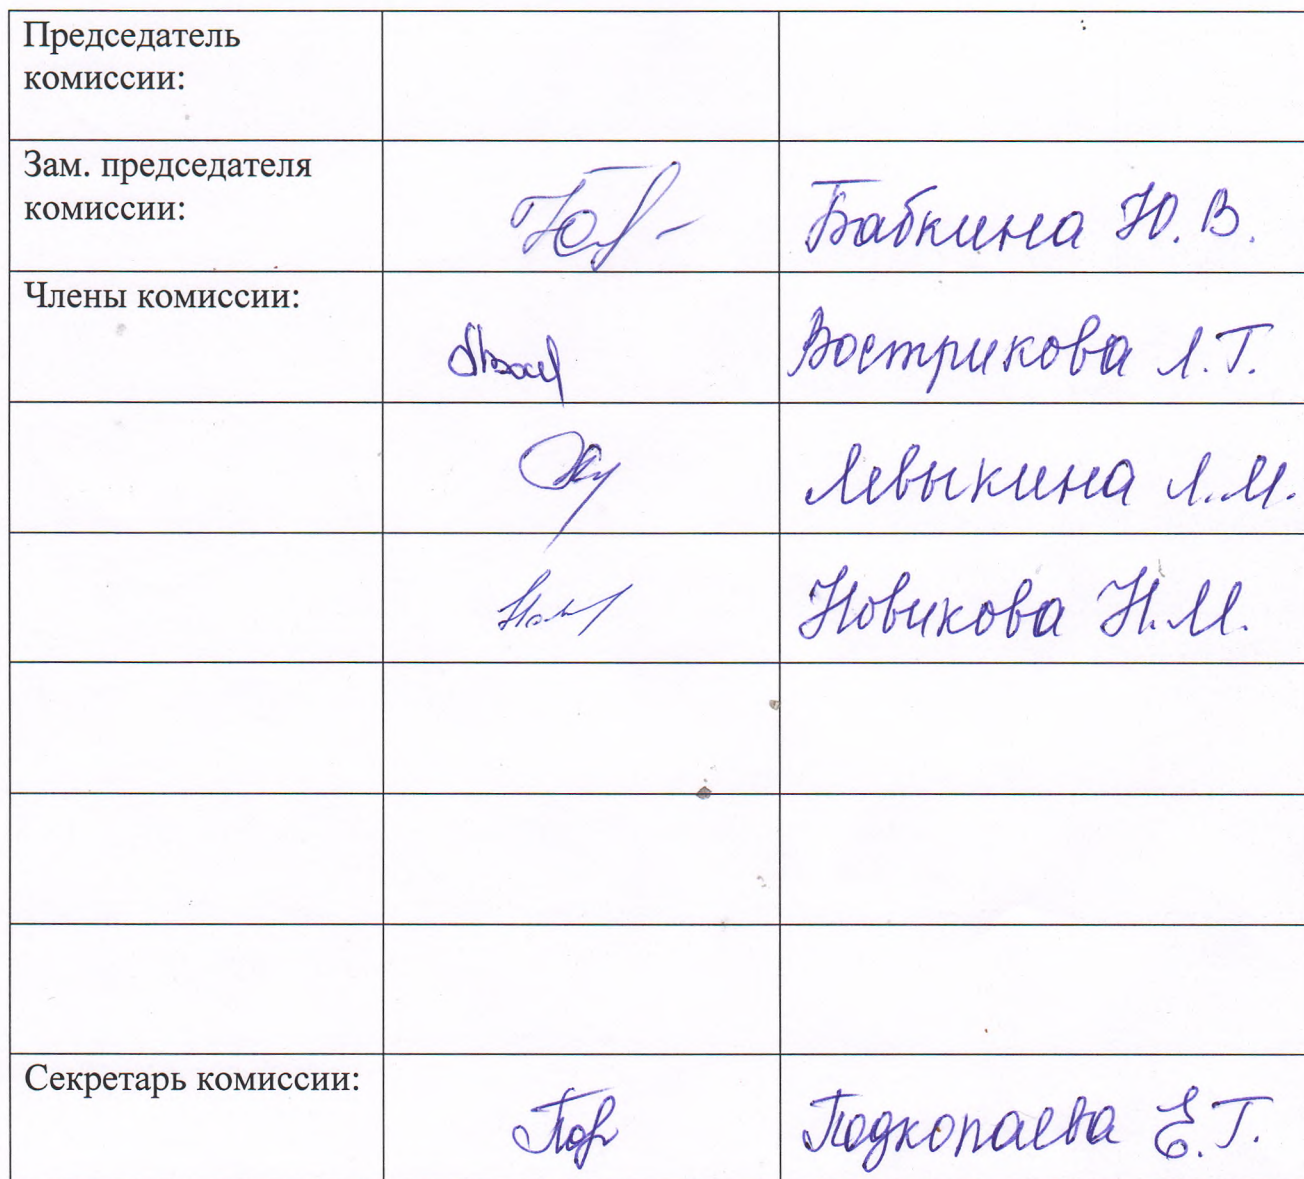 Председатель
комиссии:
Зам. председателя
комиссии:
Бабкина Ю. В.
Члены комиссии:
Вострикова Л. Г.
Левыкина Л. М.
Новикова Н. М.
Секретарь комиссии:
Подкопаева Е. Г.